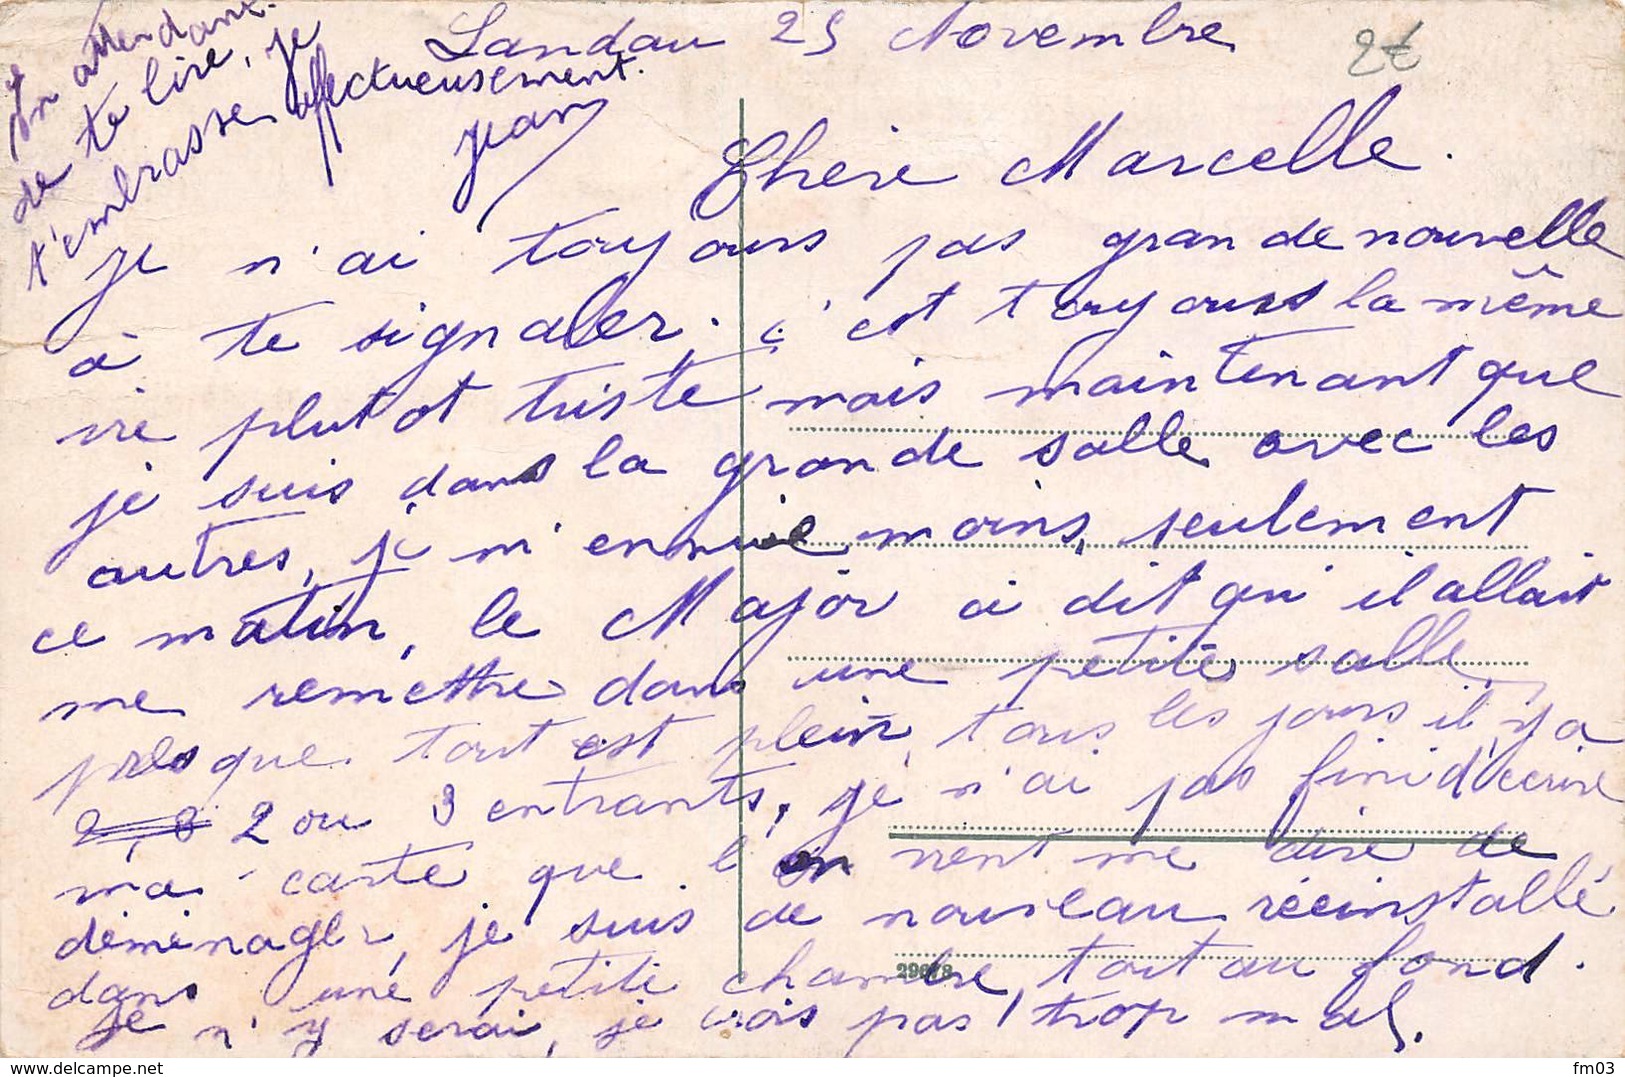 Landau 25 Novembre
2€
Chère Marcelle.
Je n'ai toujours pas grande nouvelle
à te signaler. c'est toujours la même
vie plutot triste mais maintenant que
je suis dans la grande salle avec les
autres, je m'ennuie moins, seulement
ce matin, le Major a dit qu'il allait
me remettre dans une petite salle,
presque tout est plein, tous les jours il y a
2, 3 2 ou 3 entrants, je n'ai pas fini d'écrire
ma carte que l'on vient me dire de
déménager, je suis de nouveau réeinstallé
dans une petite chambre, tout au fond.
Je n'y serai, je crois pas trop mal.
En attendant
de te lire, je
t'embrasse affectueusement.
Jean
delcampe.net
fm03